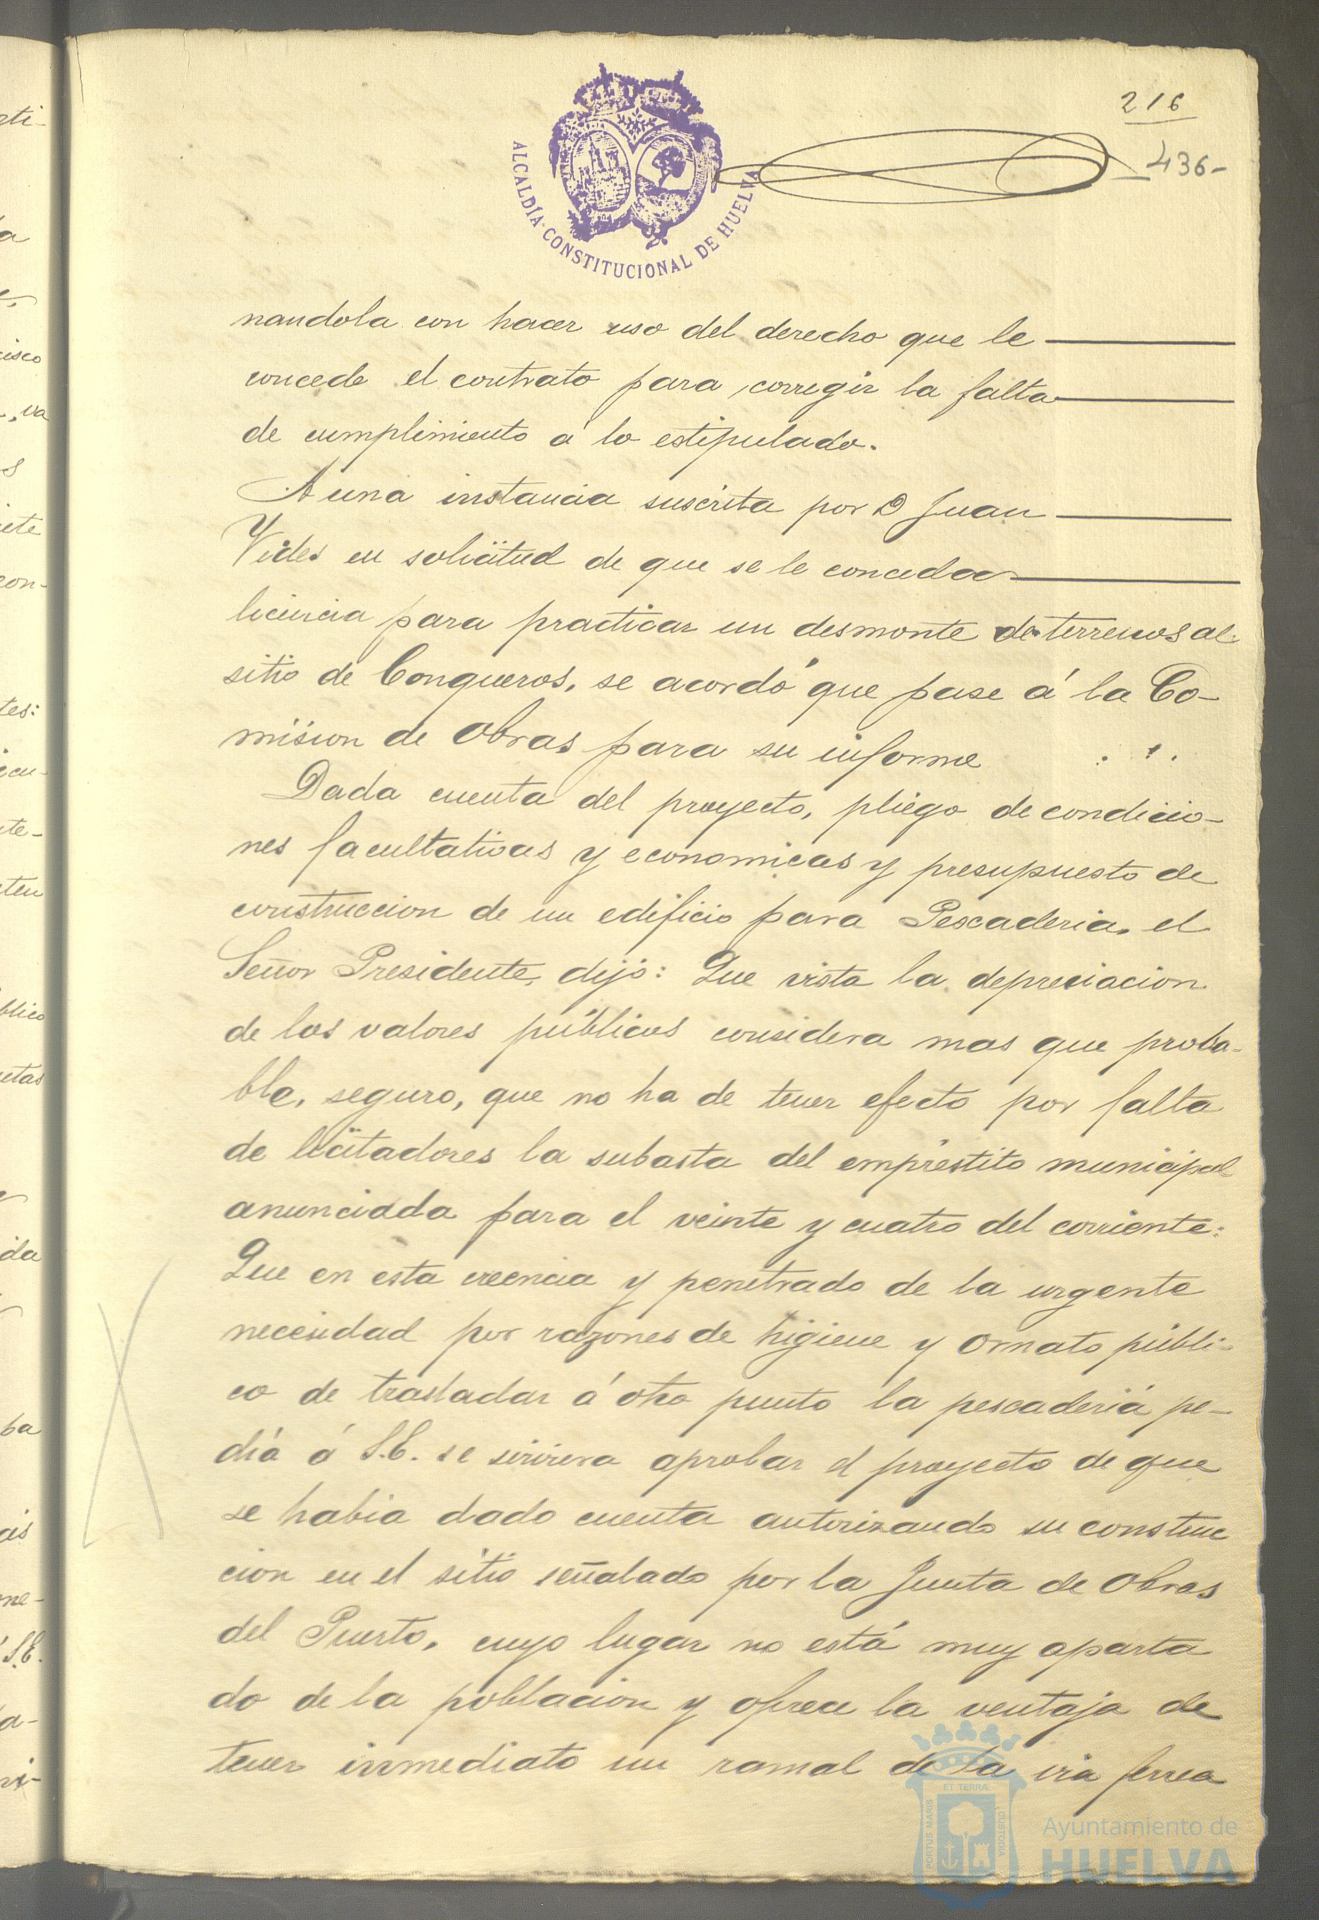 216
436-
ALCALDÍA CONSTITUCIONAL DE HUELVA
nandola con hacer uso del derecho que le
concede el contrato para corregir la falta
de cumplimiento á lo estipulado.
A una instancia suscrita por D Juan
Vides en solicitud de que se le conceda
licencia para practicar un desmonte de terrenos al
sitio de Conqueros, se acordó que pase á la Co-
mision de Obras para su informe
Dada cuenta del proyecto, pliego de condicio-
nes facultativas y economicas y presupuesto de
construccion de un edificio para Pescaderia, el
Señor Presidente, dijo: Que vista la depreciacion
de los valores públicos considera mas que proba-
ble, seguro, que no ha de tener efecto por falta
de licitadores la subasta del empréstito municipal
anunciada para el veinte y cuatro del corriente:
Que en esta creencia y penetrado de la urgente
necesidad por razones de higiene y ornato públi-
co de trasladar á otro punto la pescaderiá pe-
diá á S.E. se sirviera aprobar el proyecto de que
se habia dado cuenta autorizando su construc
cion en el sitio señalado por la Junta de Obras
del Puerto, cuyo lugar no está muy aparta
do de la poblacion y ofrece la ventaja de
tener inmediato un ramal de la via ferrea
PORTUS MARIS ET TERRÆ CUSTODIA
Ayuntamiento de
HUELVA